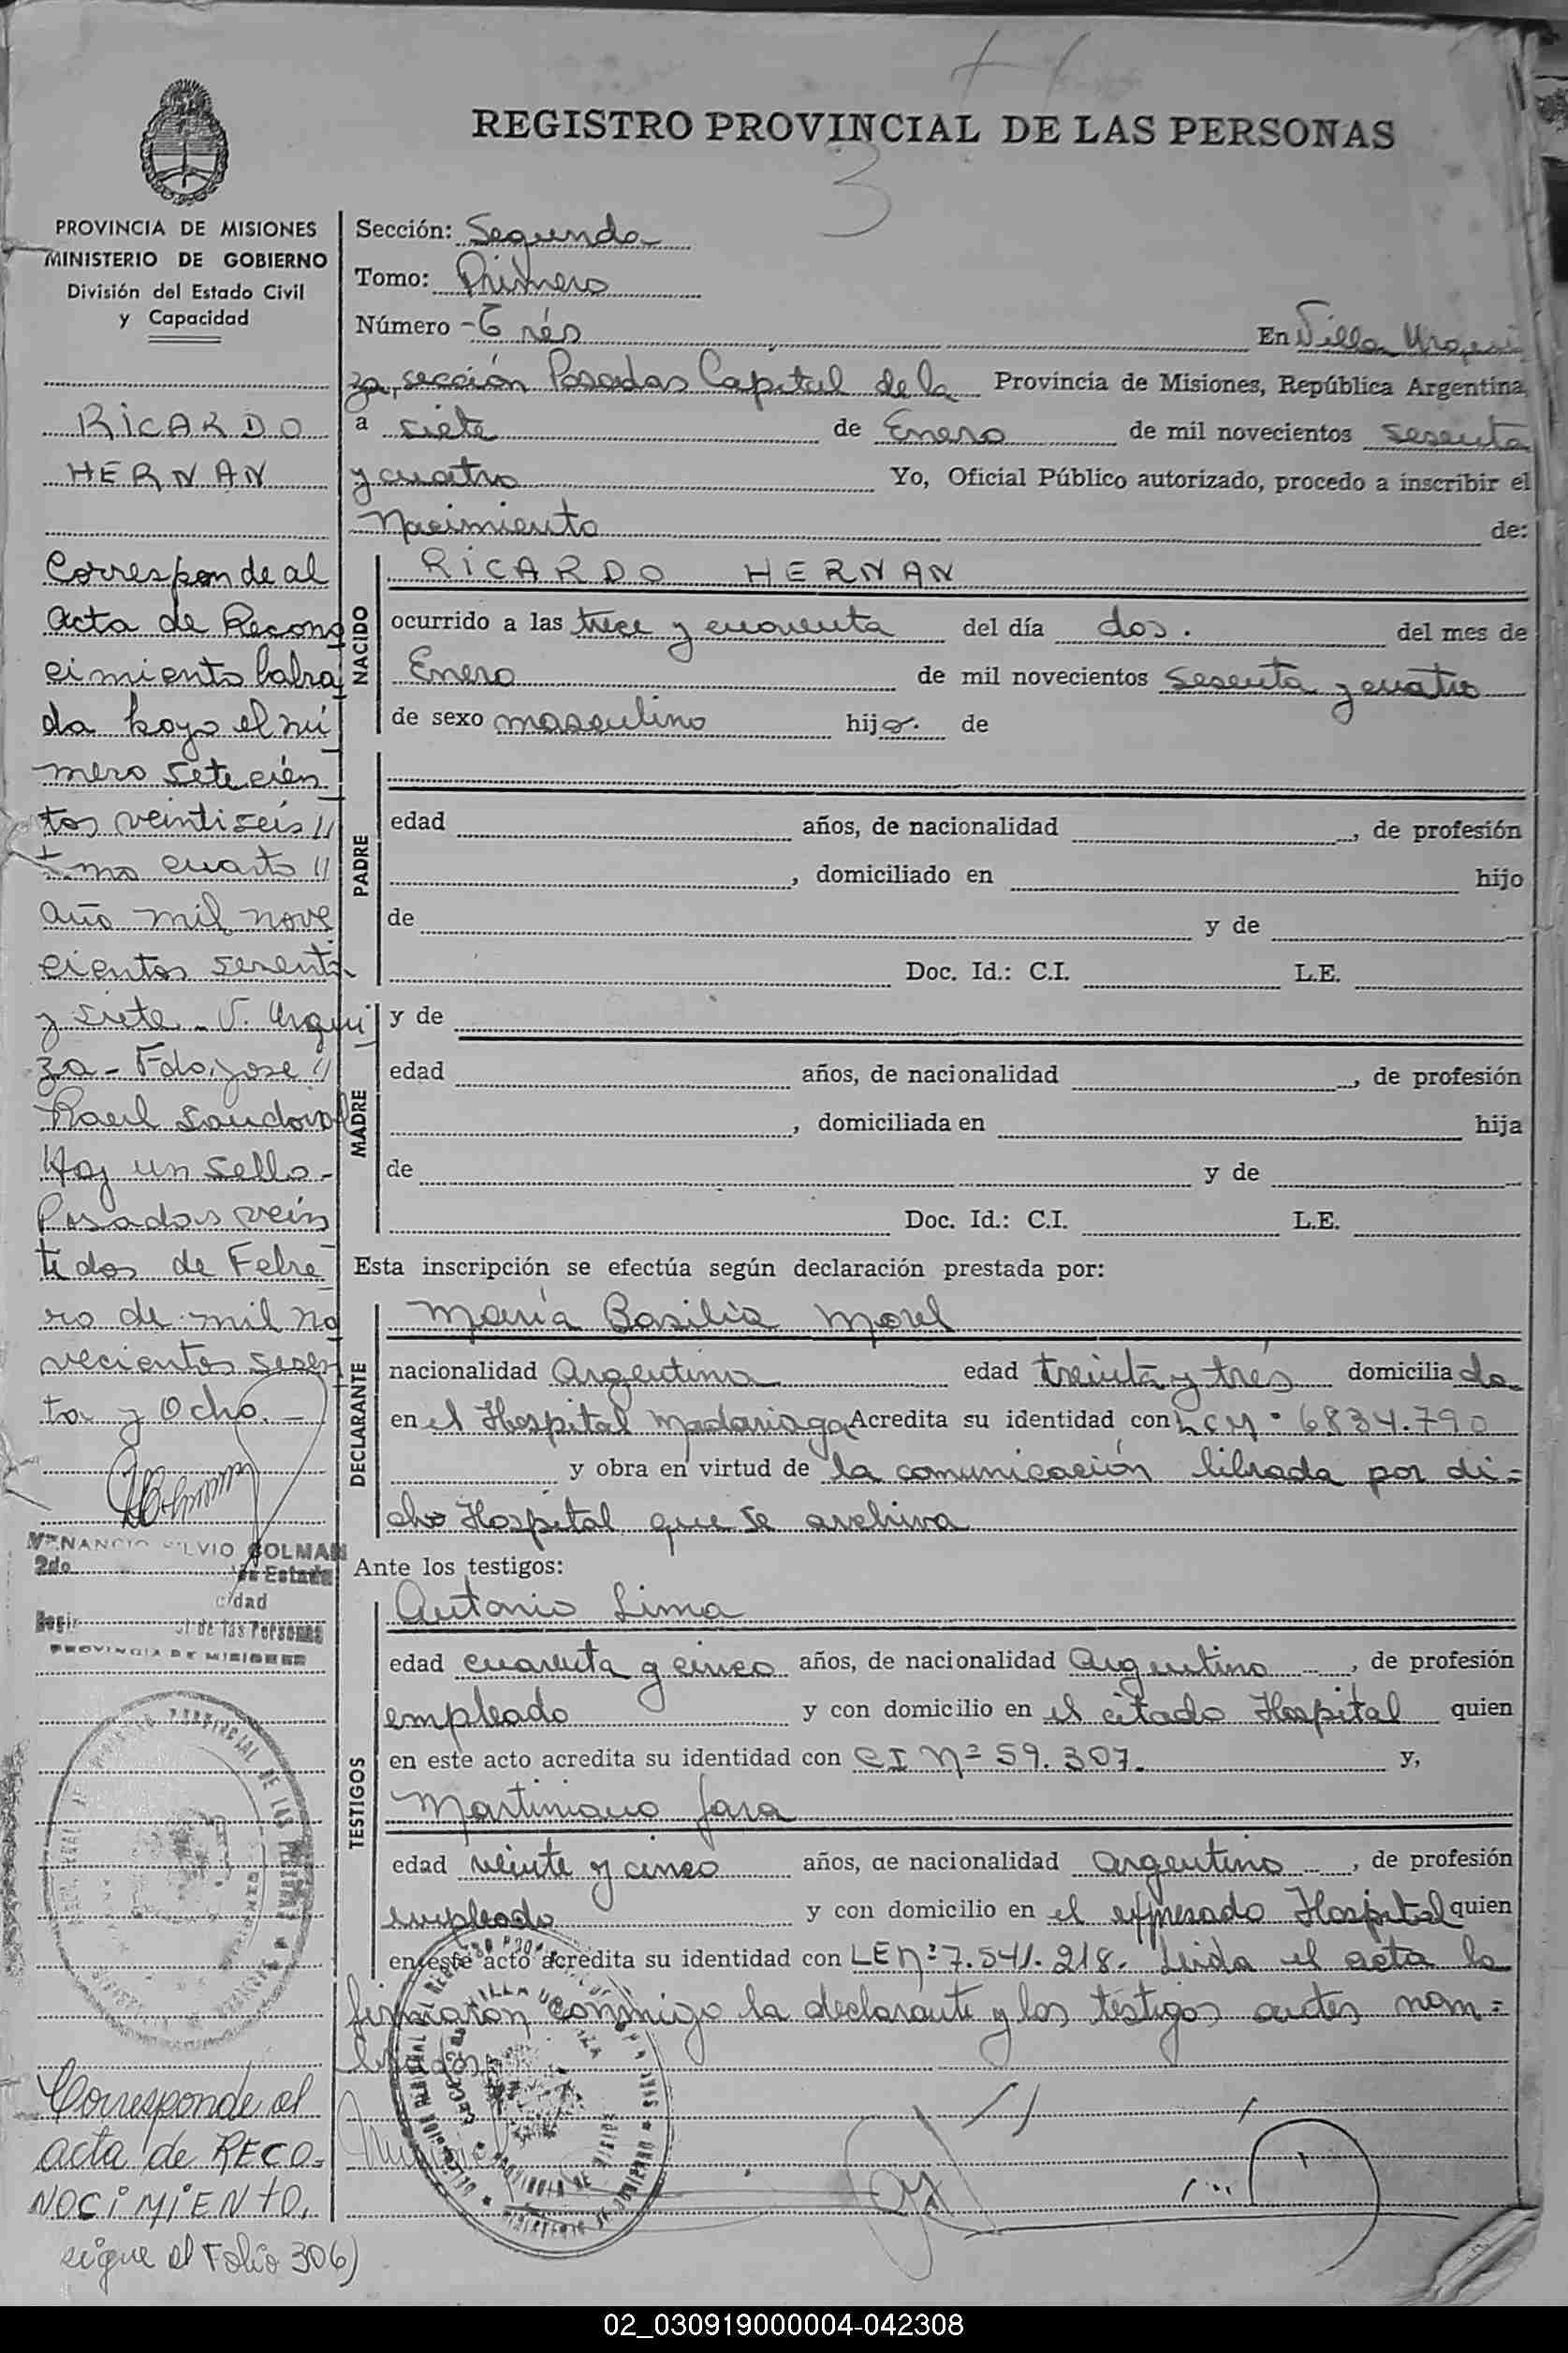 REGISTRO PROVINCIAL DE LAS PERSONAS
3
PROVINCIA DE MISIONES
MINISTERIO DE GOBIERNO
División del Estado Civil
y Capacidad
RICARDO
HERNAN
Corresponde al
acta de Recono
cimiento labra
da bajo el nú
mero setecien
tos veintiseis //
tmo cuarto //
año mil nove
cientos sesenta
y siete - V. Urqui
za - Fdo. Jose //
Raul Sandoval
Hay un sello -
Posadas vein
tidos de Febre
ro de mil no
vecientos sesen
ta y Ocho. -
COLMAN
2do
Estado
cidad
de las Personas
PROVINCIA DE MISIONES
Corresponde al
acta de RECO-
NOCIMIENTO.
sigue al Folio 306)
Sección: Segunda
Tomo: Primero
Número - Trés En Villa Urqui
za, sección Posadas Capital de la Provincia de Misiones, República Argentina,
a siete de Enero de mil novecientos sesenta
y cuatro Yo, Oficial Público autorizado, procedo a inscribir el
Nacimiento de:
NACIDO
RICARDO HERNAN
ocurrido a las trece y cuarenta del día dos. del mes de
Enero de mil novecientos sesenta y cuatro
de sexo masculino hijo. de
PADRE
edad años, de nacionalidad , de profesión
, domiciliado en hijo
de y de
Doc. Id.: C.I. L.E.
MADRE
y de
edad años, de nacionalidad , de profesión
, domiciliada en hija
de y de
Doc. Id.: C.I. L.E.
Esta inscripción se efectúa según declaración prestada por:
DECLARANTE
María Basilia Morel
nacionalidad Argentina edad treinta y trés domiciliada
en el Hospital Madariaga Acredita su identidad con 6834.790
y obra en virtud de la comunicación librada por di=
cho Hospital que se archiva
Ante los testigos:
TESTIGOS
Antonio Lima
edad cuarenta y cinco años, de nacionalidad Argentino , de profesión
empleado y con domicilio en el citado Hospital quien
en este acto acredita su identidad con CI Nº 59.307. y,
Martiniano Jara
edad veinte y cinco años, de nacionalidad argentino , de profesión
empleado y con domicilio en el expresado Hospital quien
en este acto acredita su identidad con LE Nº 7.541.218. Leida el acta la
firmaron conmigo la declarante y los testigos antes nom=
brados
02_030919000004-042308